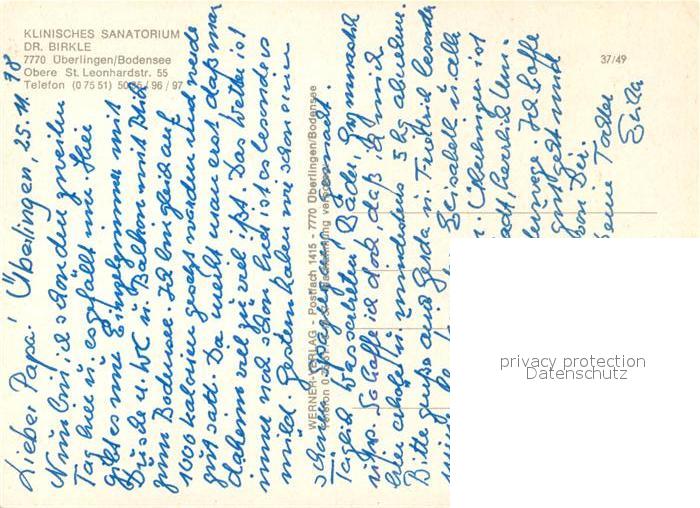 KLINISCHES SANATORIUM
DR. BIRKLE
7770 Überlingen/Bodensee
Obere St. Leonhardstr. 55
Telefon (0 75 51) 50 / 96 / 97
37/49
WERNER-VERLAG - Postfach 1415 - 7770 Überlingen/Bodensee
Telefon
Überlingen, 25.11.78
Lieber Papa!
Nun bin ich schon den zweiten
Tag hier u. es gefällt mir. Hier
gibt es nur Einzelzimmer mit
Dusche u. WC u. Balkon mit Blick
zum Bodensee. Ich bin gleich auf
1000 Kalorien gesetzt worden und werde
gut satt. Da merkt man erst, daß man
daheim viel zu viel ißt. Das Wetter ist
immer noch schön, hier ist es besonders
mild. Gestern haben wir schon einen
schönen Spaziergang gemacht.
Täglich Wassertreten, Bäder, Gymnastik
usw. So hoffe ich doch, daß ich mich
hier erhole u. mindestens 5 kg abnehme.
Bitte grüße auch Gerda u. Friedrich
Elisabeth u. alle
Überlingen ist
Ich hoffe
gut geht und
von Dir.
Deine Tochter
privacy protection
Datenschutz